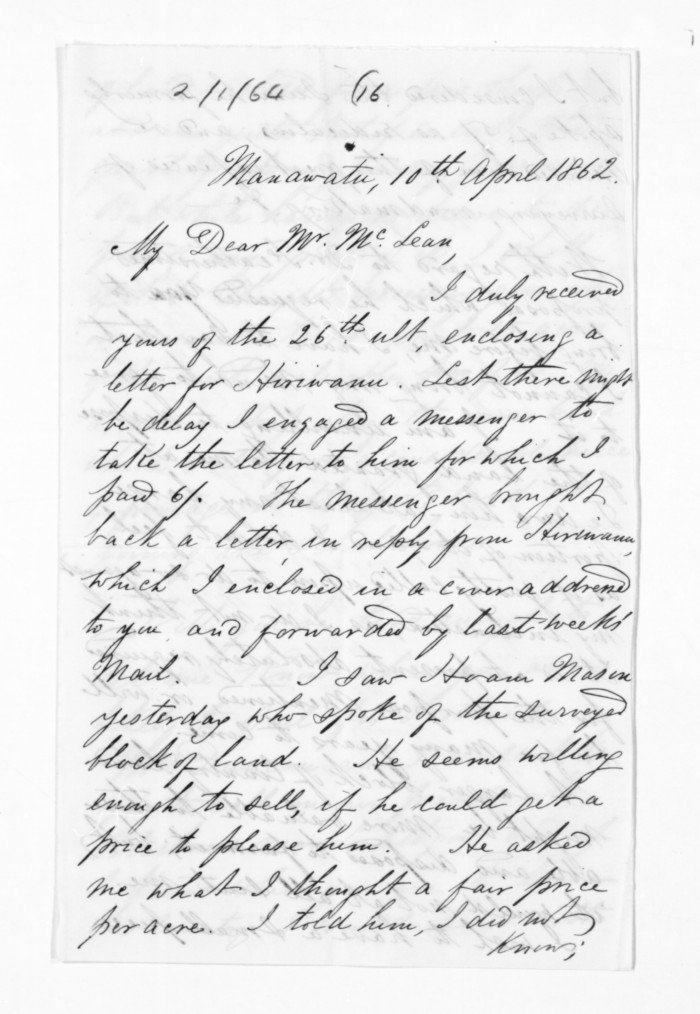 2/1/64 (16
Manawatu, 10th April 1862.
My Dear Mr. McLean,
I duly received
yours of the 26th ult, enclosing a
letter for Hiriwanu. Lest there might
be delay I engaged a messenger to
take the letter to him for which I
paid 6/. The messenger brought
back a letter, in reply from Hiriwanu,
which I enclosed in a cover addressed
to you, and forwarded by last weeks'
Mail. I saw Ihvam Mason
yesterday who spoke of the surveyed
block of land. He seems willing
enough to sell, if he could get a
price to please him. He asked
me what I thought a fair price
per acre. I told him, I did not
know;